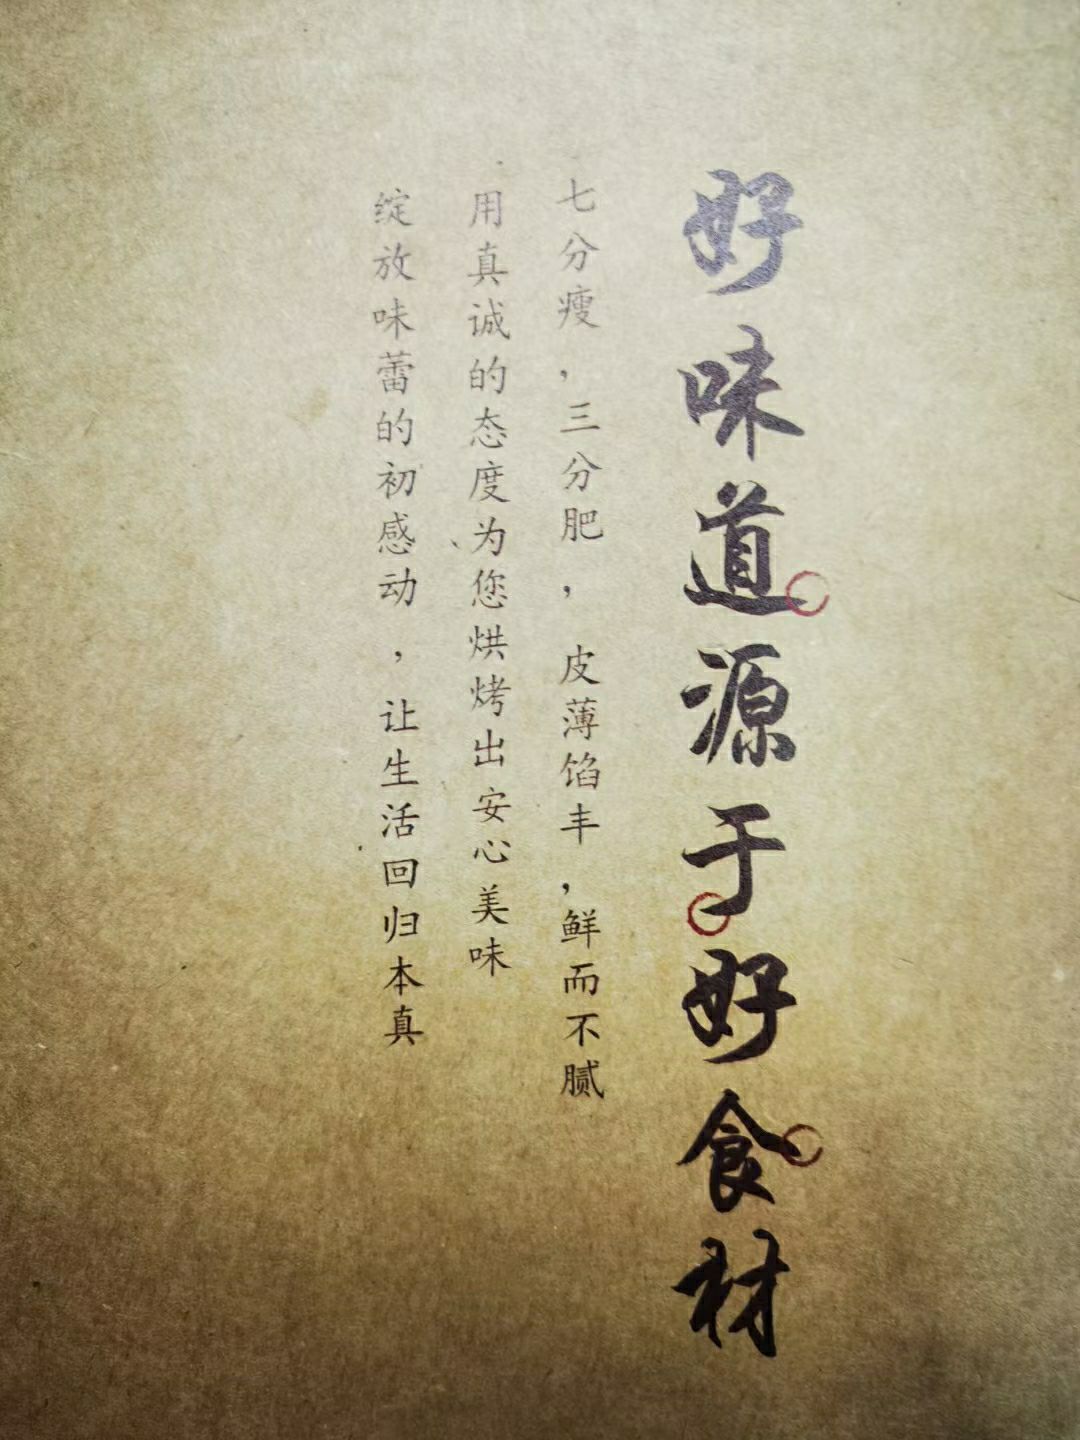 好味道源于好食材
七分瘦，三分肥，皮薄馅丰，鲜而不腻
用真诚的态度为您烘烤出安心美味
绽放味蕾的初感动，让生活回归本真